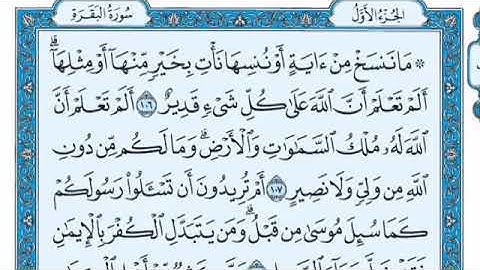 الجزء الأول
سورة البقرة
۞ مَا نَنسَخْ مِنْ ءَايَةٍ أَوْ نُنسِهَا نَأْتِ بِخَيْرٍ مِّنْهَآ أَوْ مِثْلِهَآۗ
أَلَمْ تَعْلَمْ أَنَّ ٱللَّهَ عَلَىٰ كُلِّ شَىْءٍ قَدِيرٌ ١٠٦ أَلَمْ تَعْلَمْ أَنَّ
ٱللَّهَ لَهُۥ مُلْكُ ٱلسَّمَٰوَٰتِ وَٱلْأَرْضِۗ وَمَا لَكُم مِّن دُونِ
ٱللَّهِ مِن وَلِىٍّ وَلَا نَصِيرٍ ١٠٧ أَمْ تُرِيدُونَ أَن تَسْـَٔلُوا۟ رَسُولَكُمْ
كَمَا سُئِلَ مُوسَىٰ مِن قَبْلُۗ وَمَن يَتَبَدَّلِ ٱلْكُفْرَ بِٱلْإِيمَٰنِ